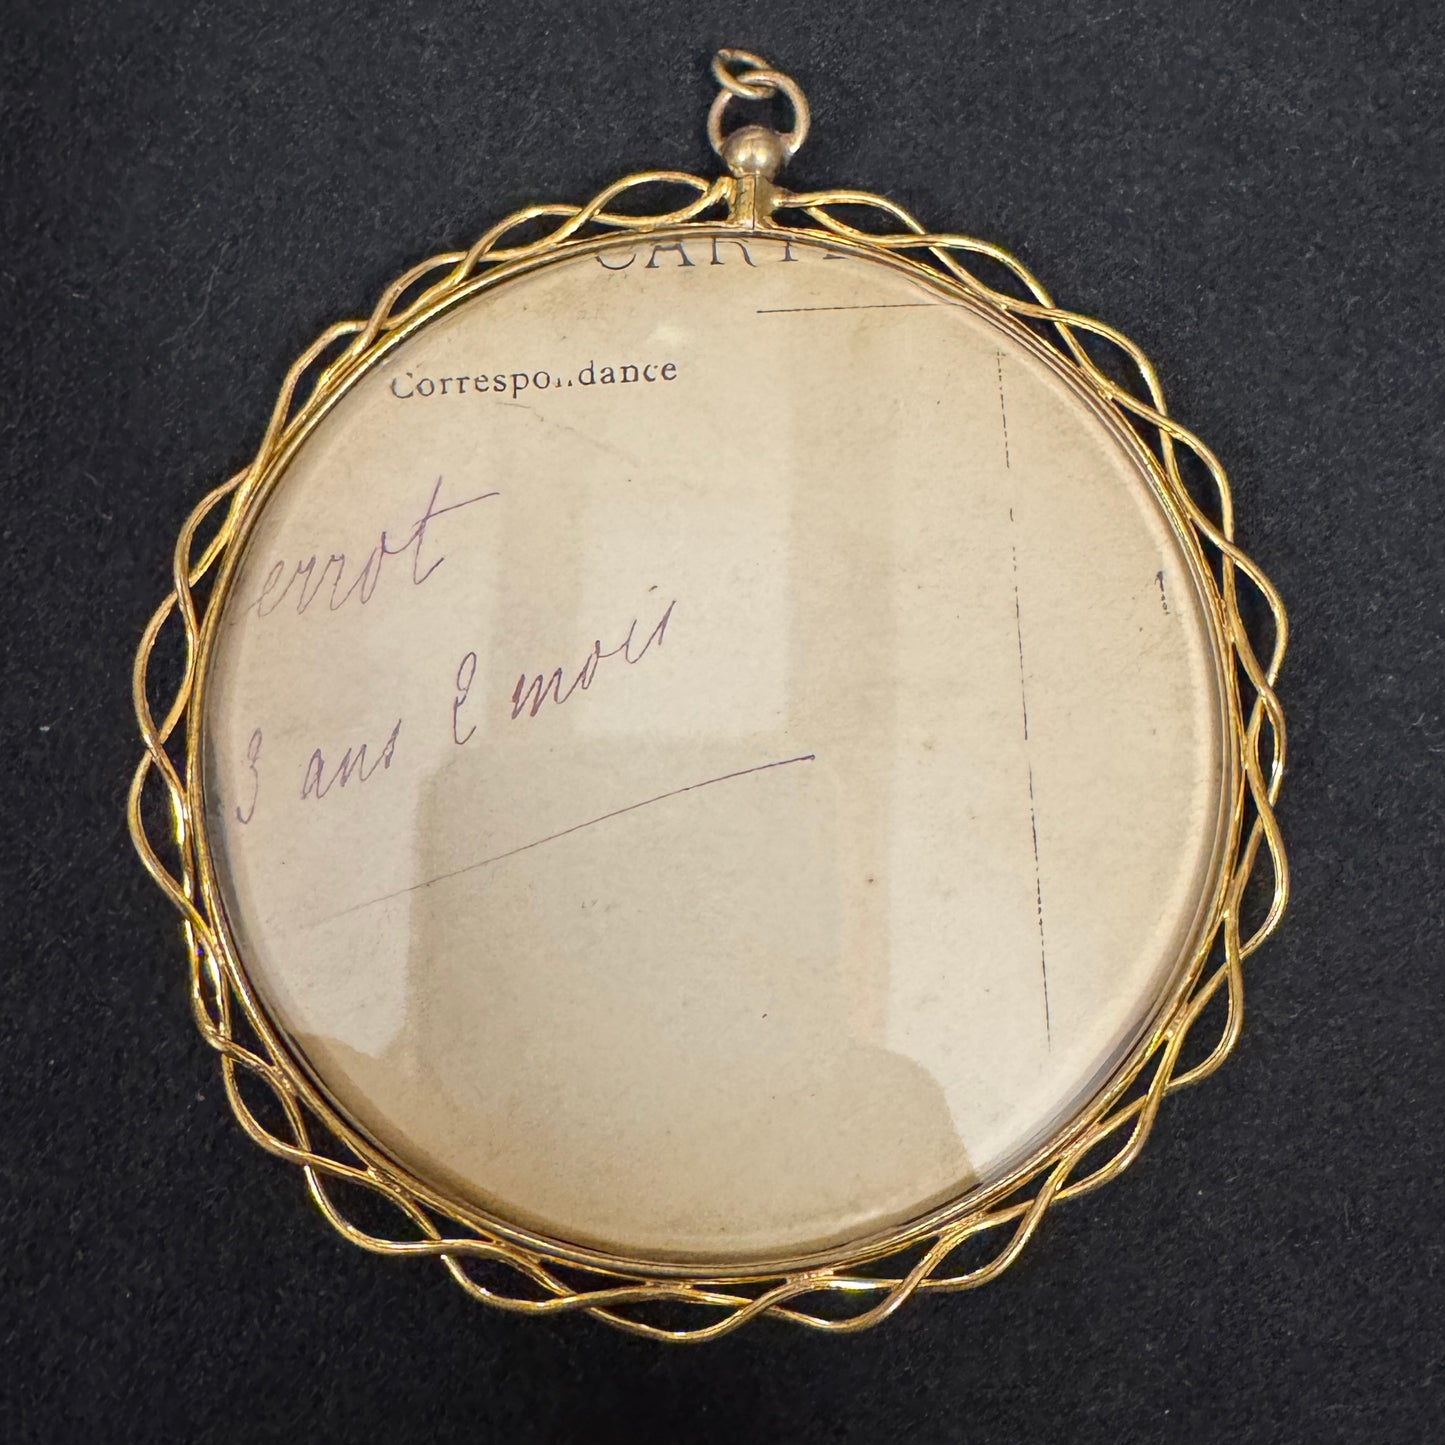 CART
Correspondance
errot
3 ans 2 mois